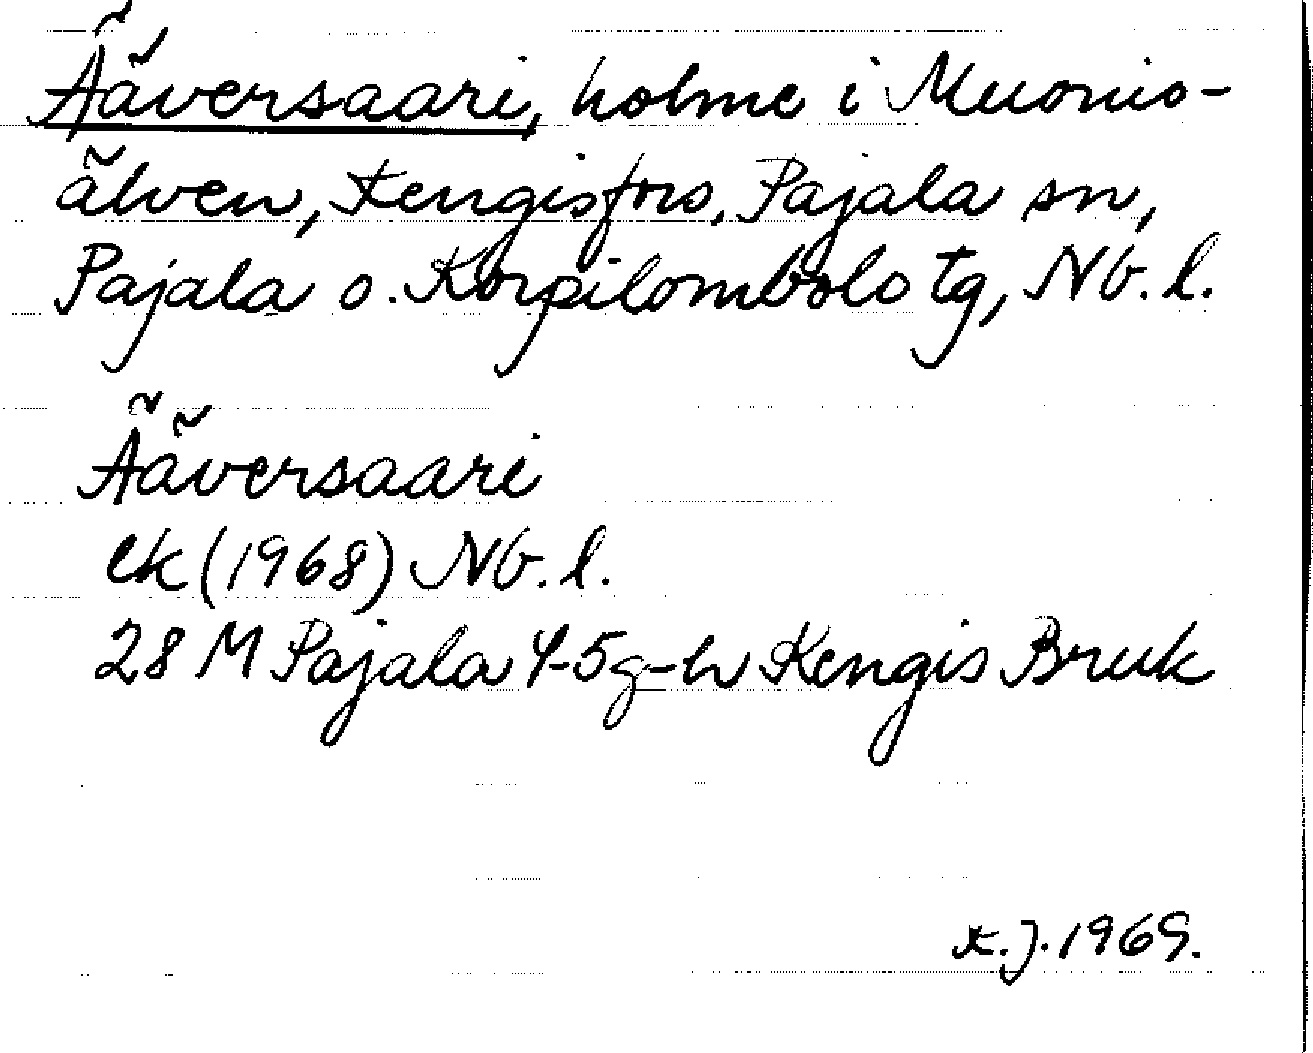 Ääversaari, holme i Muonio-
älven, Kengisfors, Pajala sn,
Pajala o. Korpilombolo tg, Nb. l.
Ääversaari
ek (1968) Nb. l.
28 M Pajala 4-5 g-h Kengis Bruk
K.J. 1969.